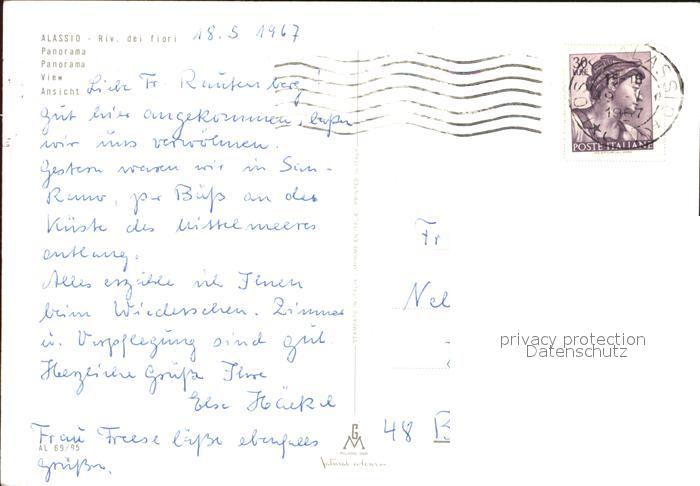 ALASSIO - Riv. dei fiori 18.5 1967
Panorama
Panorama
View
Ansicht Liebe Fr. Rautenberg
gut hier angekommen, laßen
wir uns verwöhnen.
Gestern waren wir in San-
Remo, per Buß an der
Küste des Mittelmeeres
entlang.
Alles erzähle ich Ihnen
beim Wiedersehen. Zimmer
u. Verpflegung sind gut.
Herzliche Grüße Ihre
Else Häckel
Frau Freese läßt ebenfalls
grüßen.
AL 69/95
natural colorca
30 LIRE
POSTE ITALIANE
ALASSIO
1967
Fr
Nel
48 B
privacy protection
Datenschutz